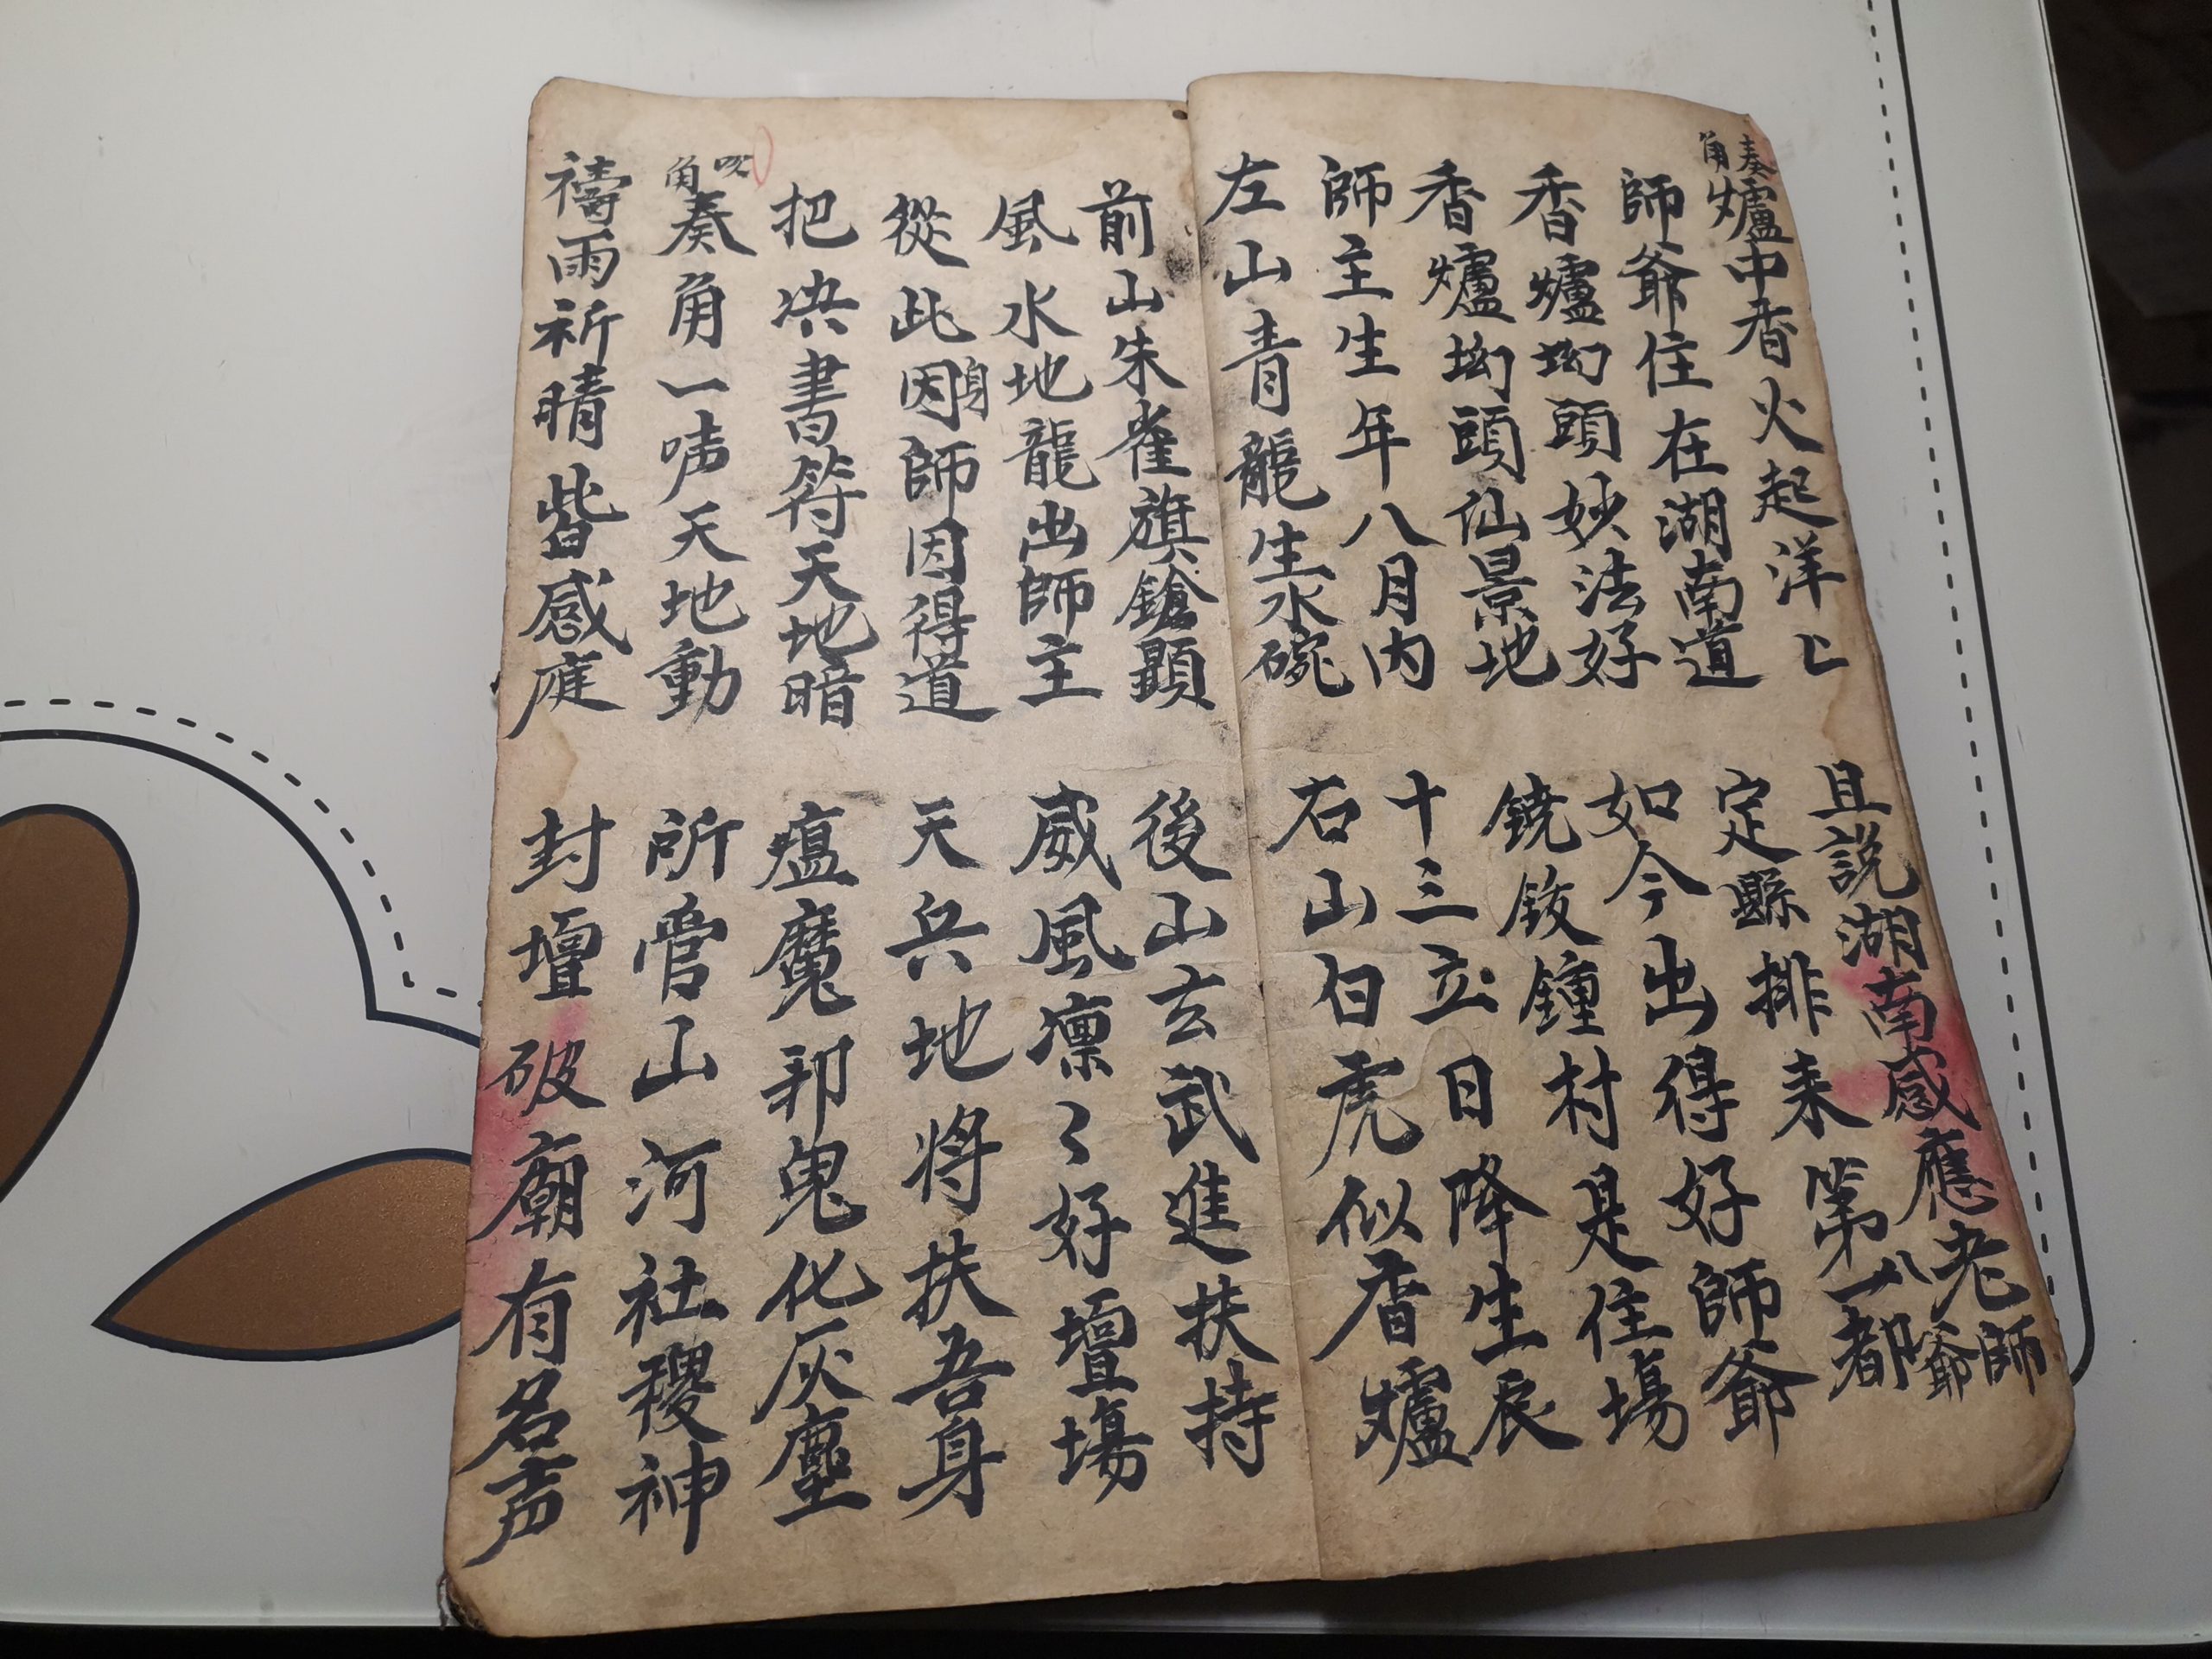 奏角
爐中香火起洋〻 且説湖南感應老師爺
師爺住在湖南道 定縣排来第一八都
香爐坳頭妙法好 如今出得好師爺
香爐坳頭仙景地 鐃鈸鐘村是住場
師主生年八月内 十三立日降生辰
左山青龍生水碗 右山白虎似香爐
前山朱雀旗鎗顕 後山玄武進扶持
風水地龍出師主 威風凛〻好壇場
從此因身師因得道 天兵地将扶吾身
把决書符天地暗 瘟魔邪鬼化灰塵
吹角
奏角一声天地動 所管山河社稷神
禱雨祈晴皆感应 封壇破廟有名声